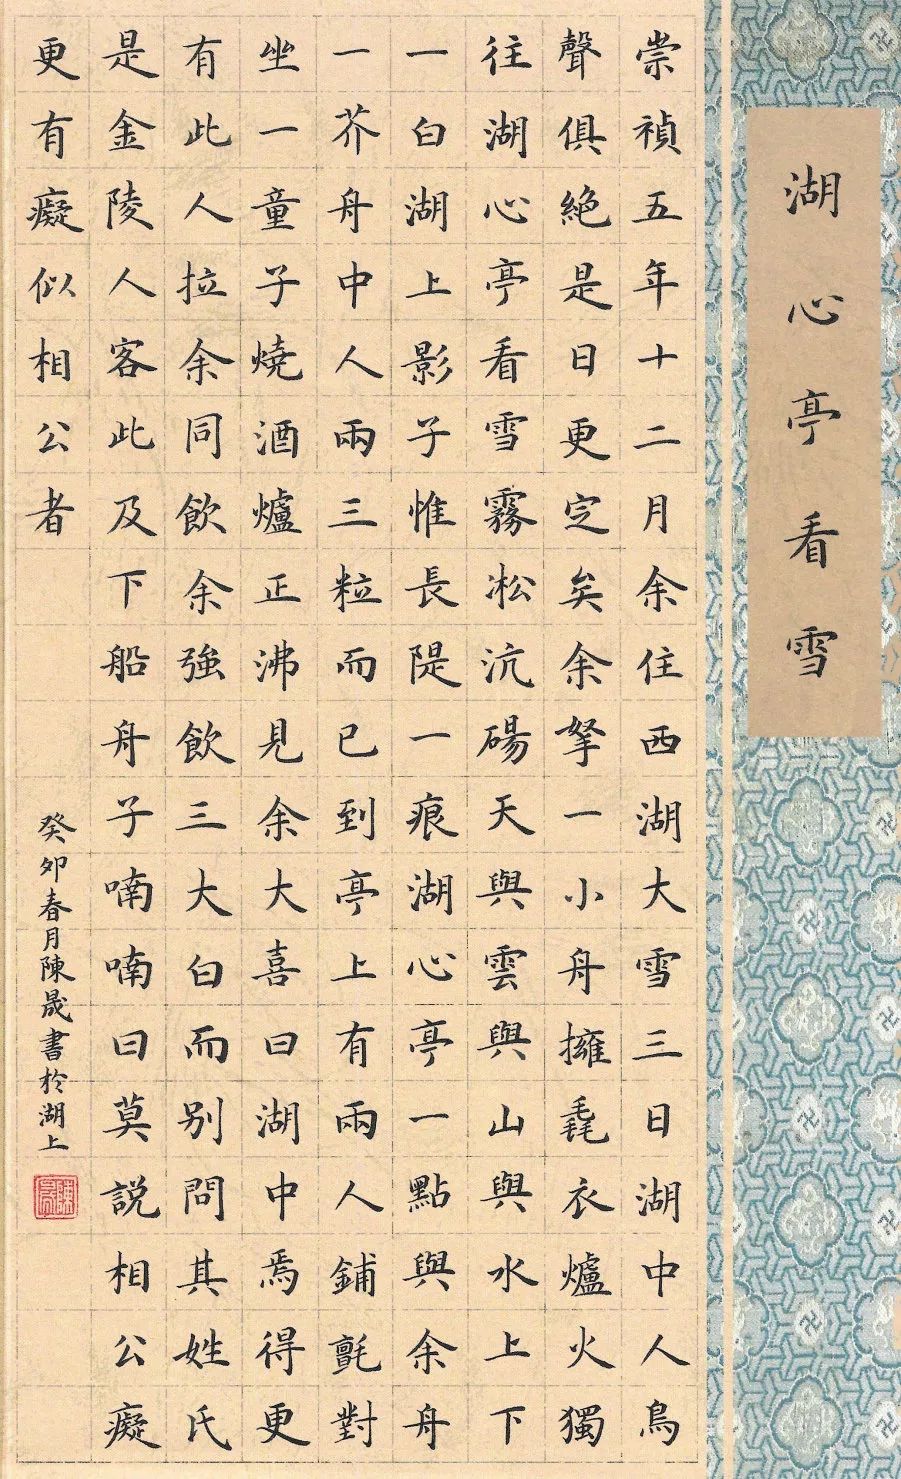 湖心亭看雪
崇禎五年十二月余住西湖大雪三日湖中人鳥
聲俱絕是日更定矣余拏一小舟擁毳衣爐火獨
往湖心亭看雪霧凇沆碭天與雲與山與水上下
一白湖上影子惟長隄一痕湖心亭一點與余舟
一芥舟中人兩三粒而已到亭上有兩人鋪氈對
坐一童子燒酒爐正沸見余大喜曰湖中焉得更
有此人拉余同飲余強飲三大白而別問其姓氏
是金陵人客此及下船舟子喃喃曰莫說相公癡
更有癡似相公者
癸卯春月陳晟書於湖上
陳晟